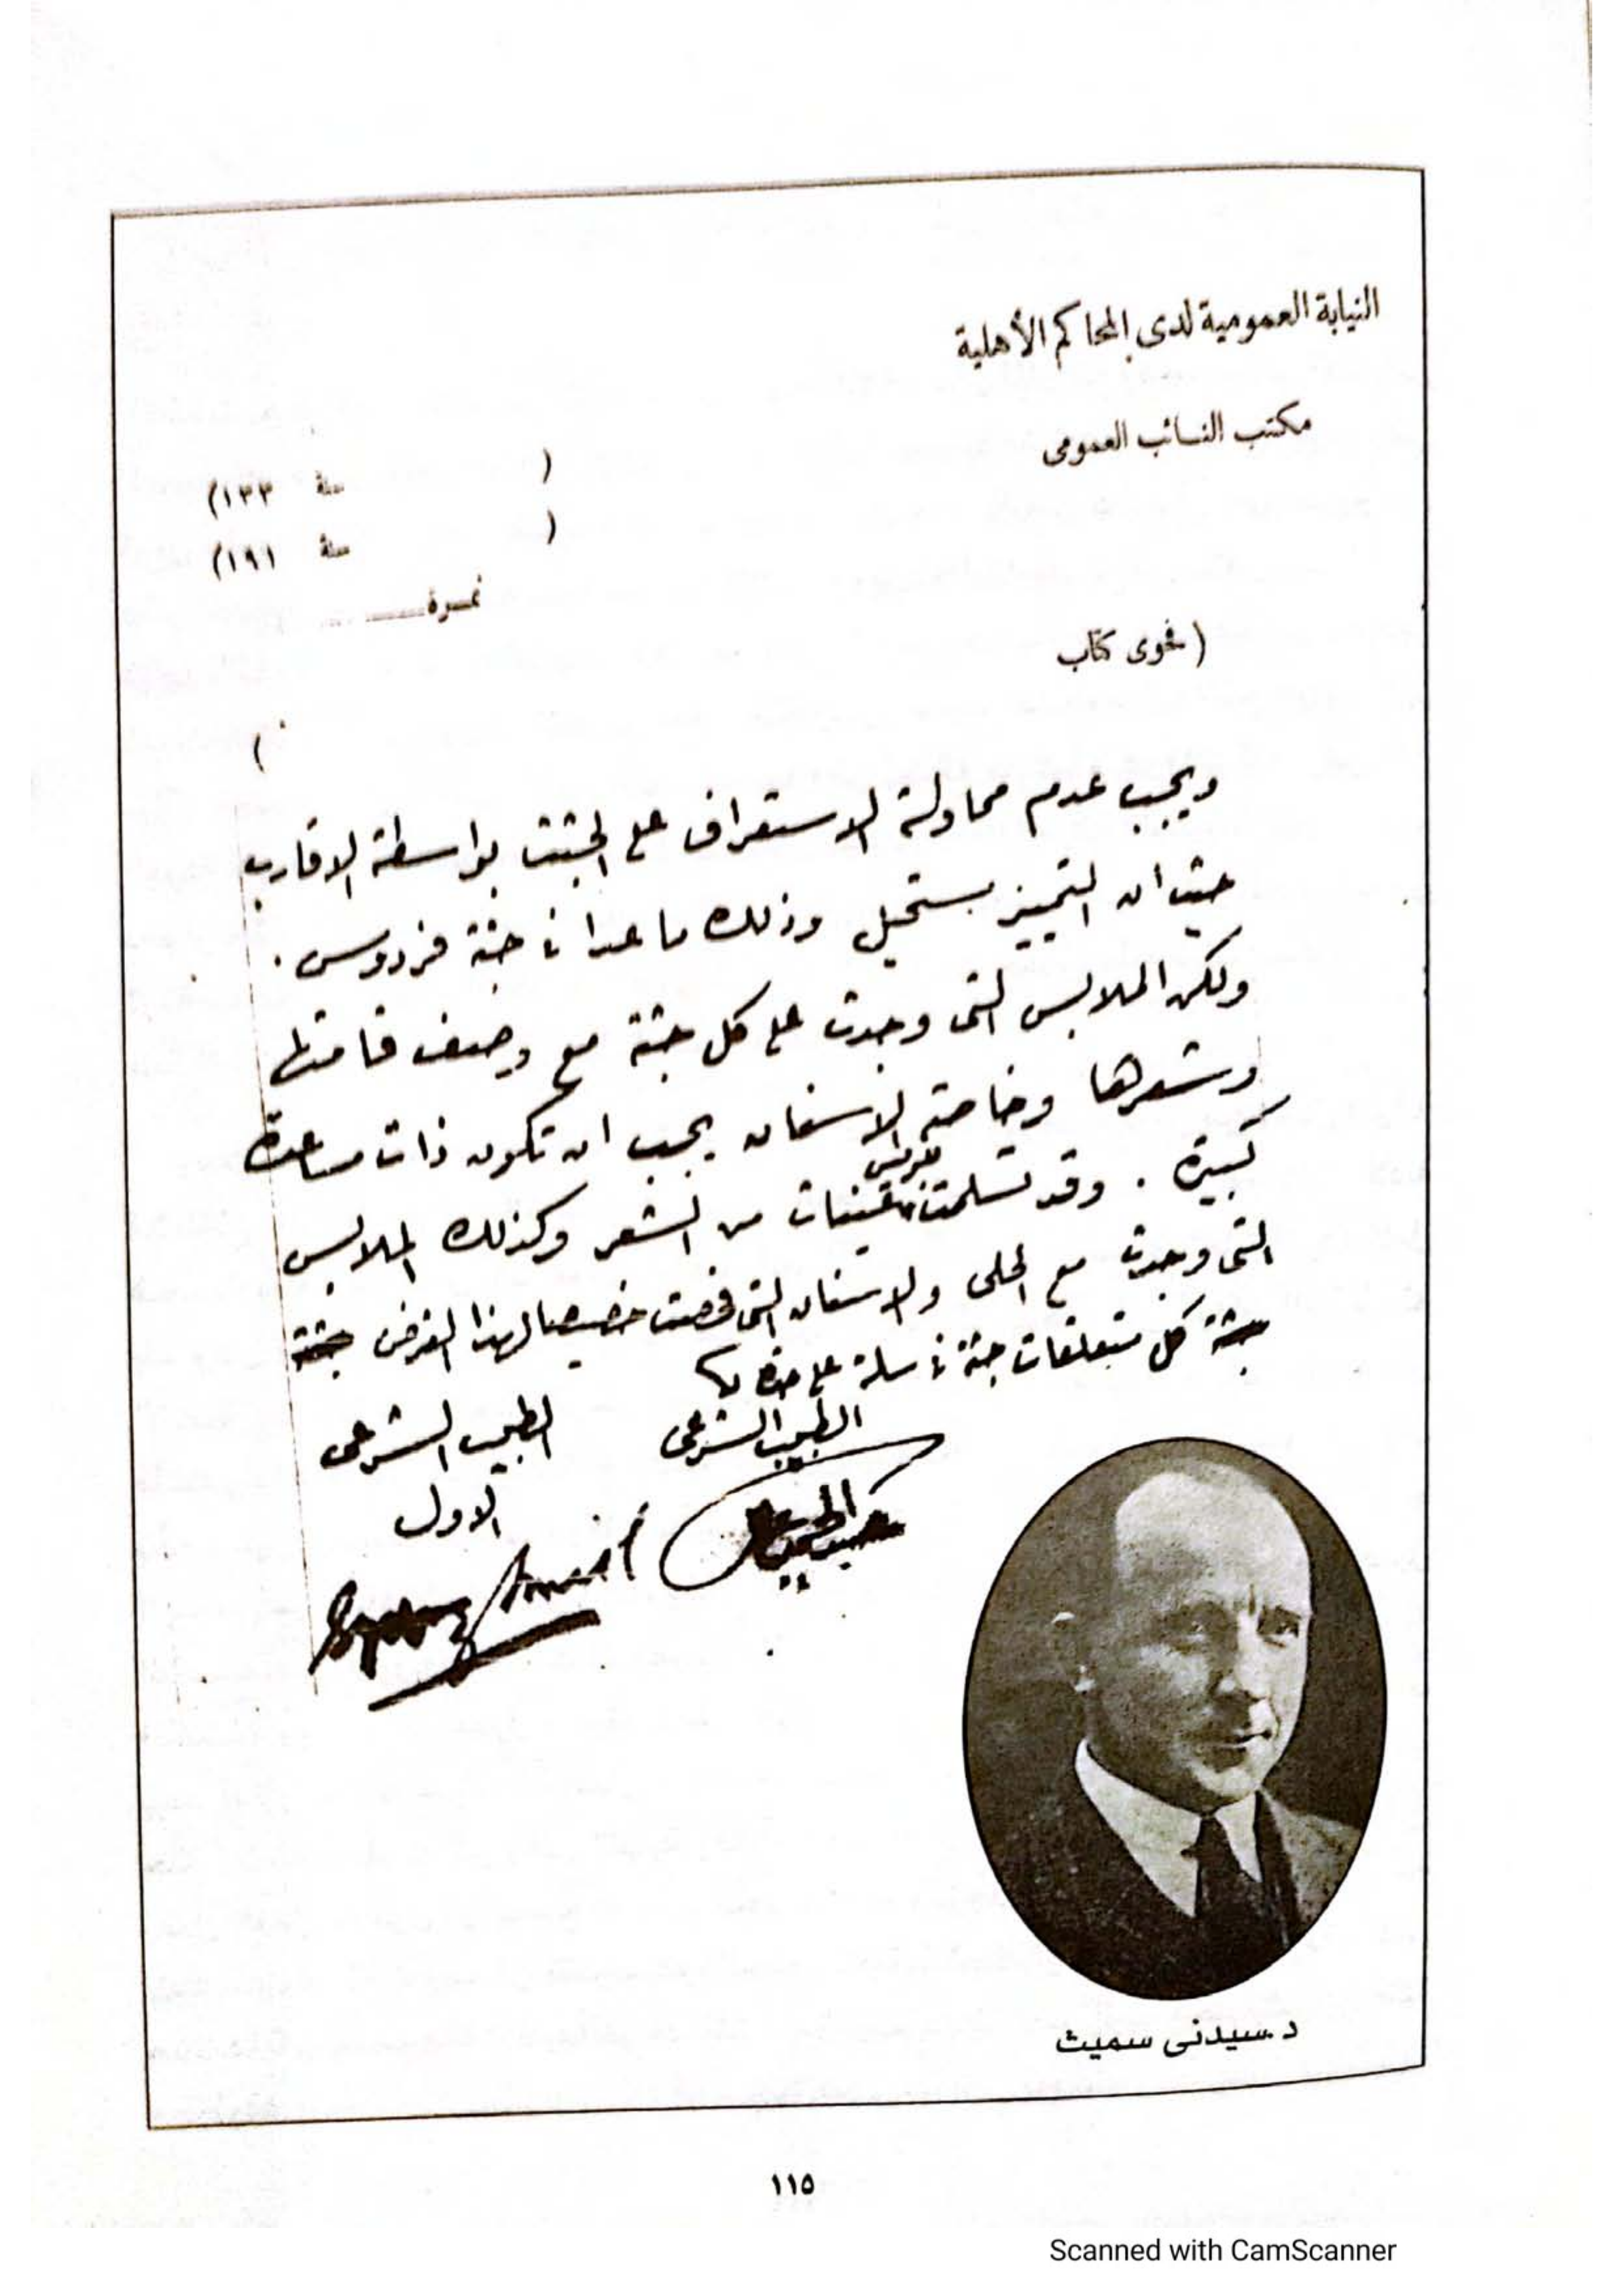 النيابة العمومية لدى المحاكم الأهلية
مكتب النائب العمومى
( سنة ١٣٣)
( سنة ١٩١)
نمرة
( فحوى كتاب
)
ويجب عدم محاولة الاستعراف على الجثث بواسطة الاقارب
حيث ان التمييز مستحيل وذلك ما عدا فى جثة فردوس .
ولكن الملابس التى وجدت على كل جثة مع وصف قامتها
وشعرها وخاصة الاسنان يجب ان تكون ذات مساعدة
كبيرة . وقد تسلمت للبوليس عينات من الشعر وكذلك الملابس
التى وجدت مع الحلى والاسنان التى فحصت خصيصا لهذا الغرض جثة
جثة كل متعلقات جثة فى سلة على حدة
الطبيب الشرعى الطبيب الشرعى
الاول
د. سيدنى سميث
١١٥
Scanned with CamScanner